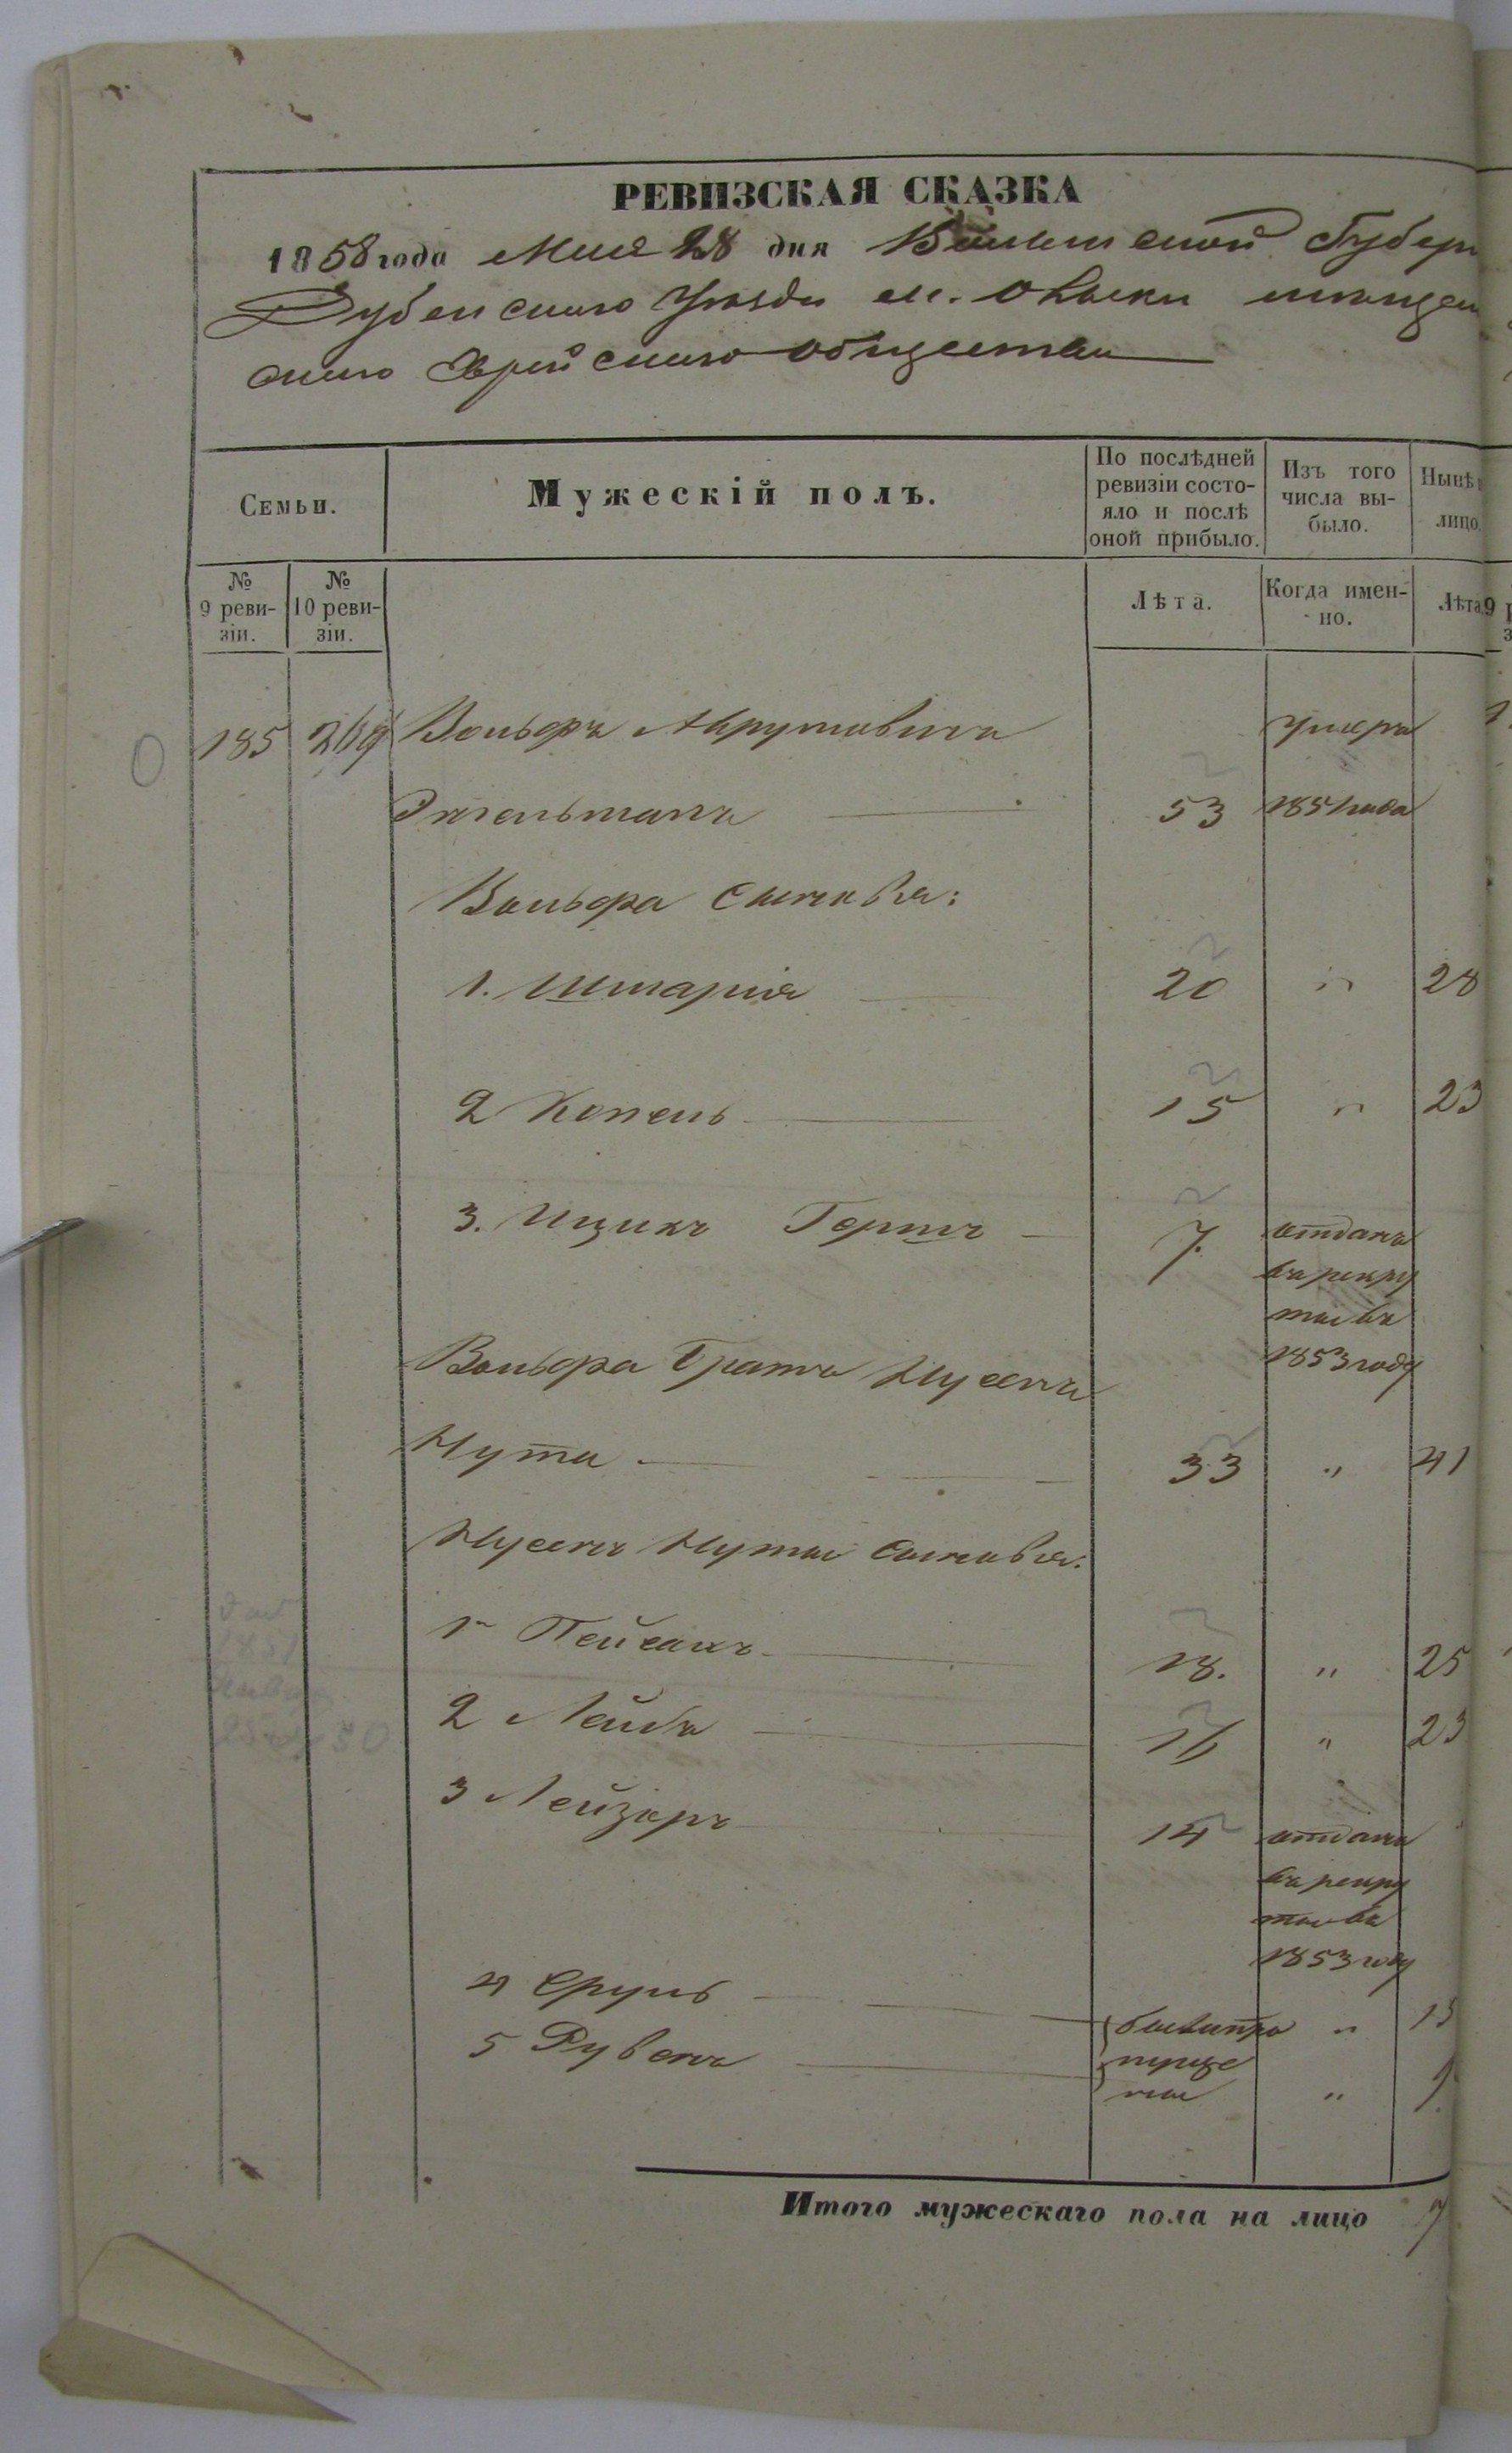 РЕВИЗСКАЯ СКАЗКА
1858 года Мая 28 дня Волынской Губерн
Дубенскаго Уезда м. Олыки мещан
скаго Еврейскаго общества
Семьи.
Мужескій полъ.
По послѣдней ревизіи состо-
яло и послѣ
оной прибыло.
Изъ того
числа вы-
было.
Нынѣ
лицо.
№
9 реви-
зіи.
№
10 реви-
зіи.
Лѣта.
Когда имен-
но.
Лѣта
9
185 Вольфъ умеръ
53 1851 года
Вольфа сыновья:
1. Шмарія 20 " 28
2 Копель 15 " 23
3. Ицикъ Гершъ 7. отданъ
въ рекру
ты въ
1853 году
Вольфа братъ Нусенъ
Нута 33 " 41
Нусенъ Нуты сыновья:
1 Пейсахъ 18. " 25
2 Лейба 16 " 23
3 Лейзоръ 14 отданъ
въ рекру
ты въ
1853 году
4 Сруль бывъ про " 15
5 Рувенъ пуще
ны " 9
Итого мужескаго пола на лицо 7